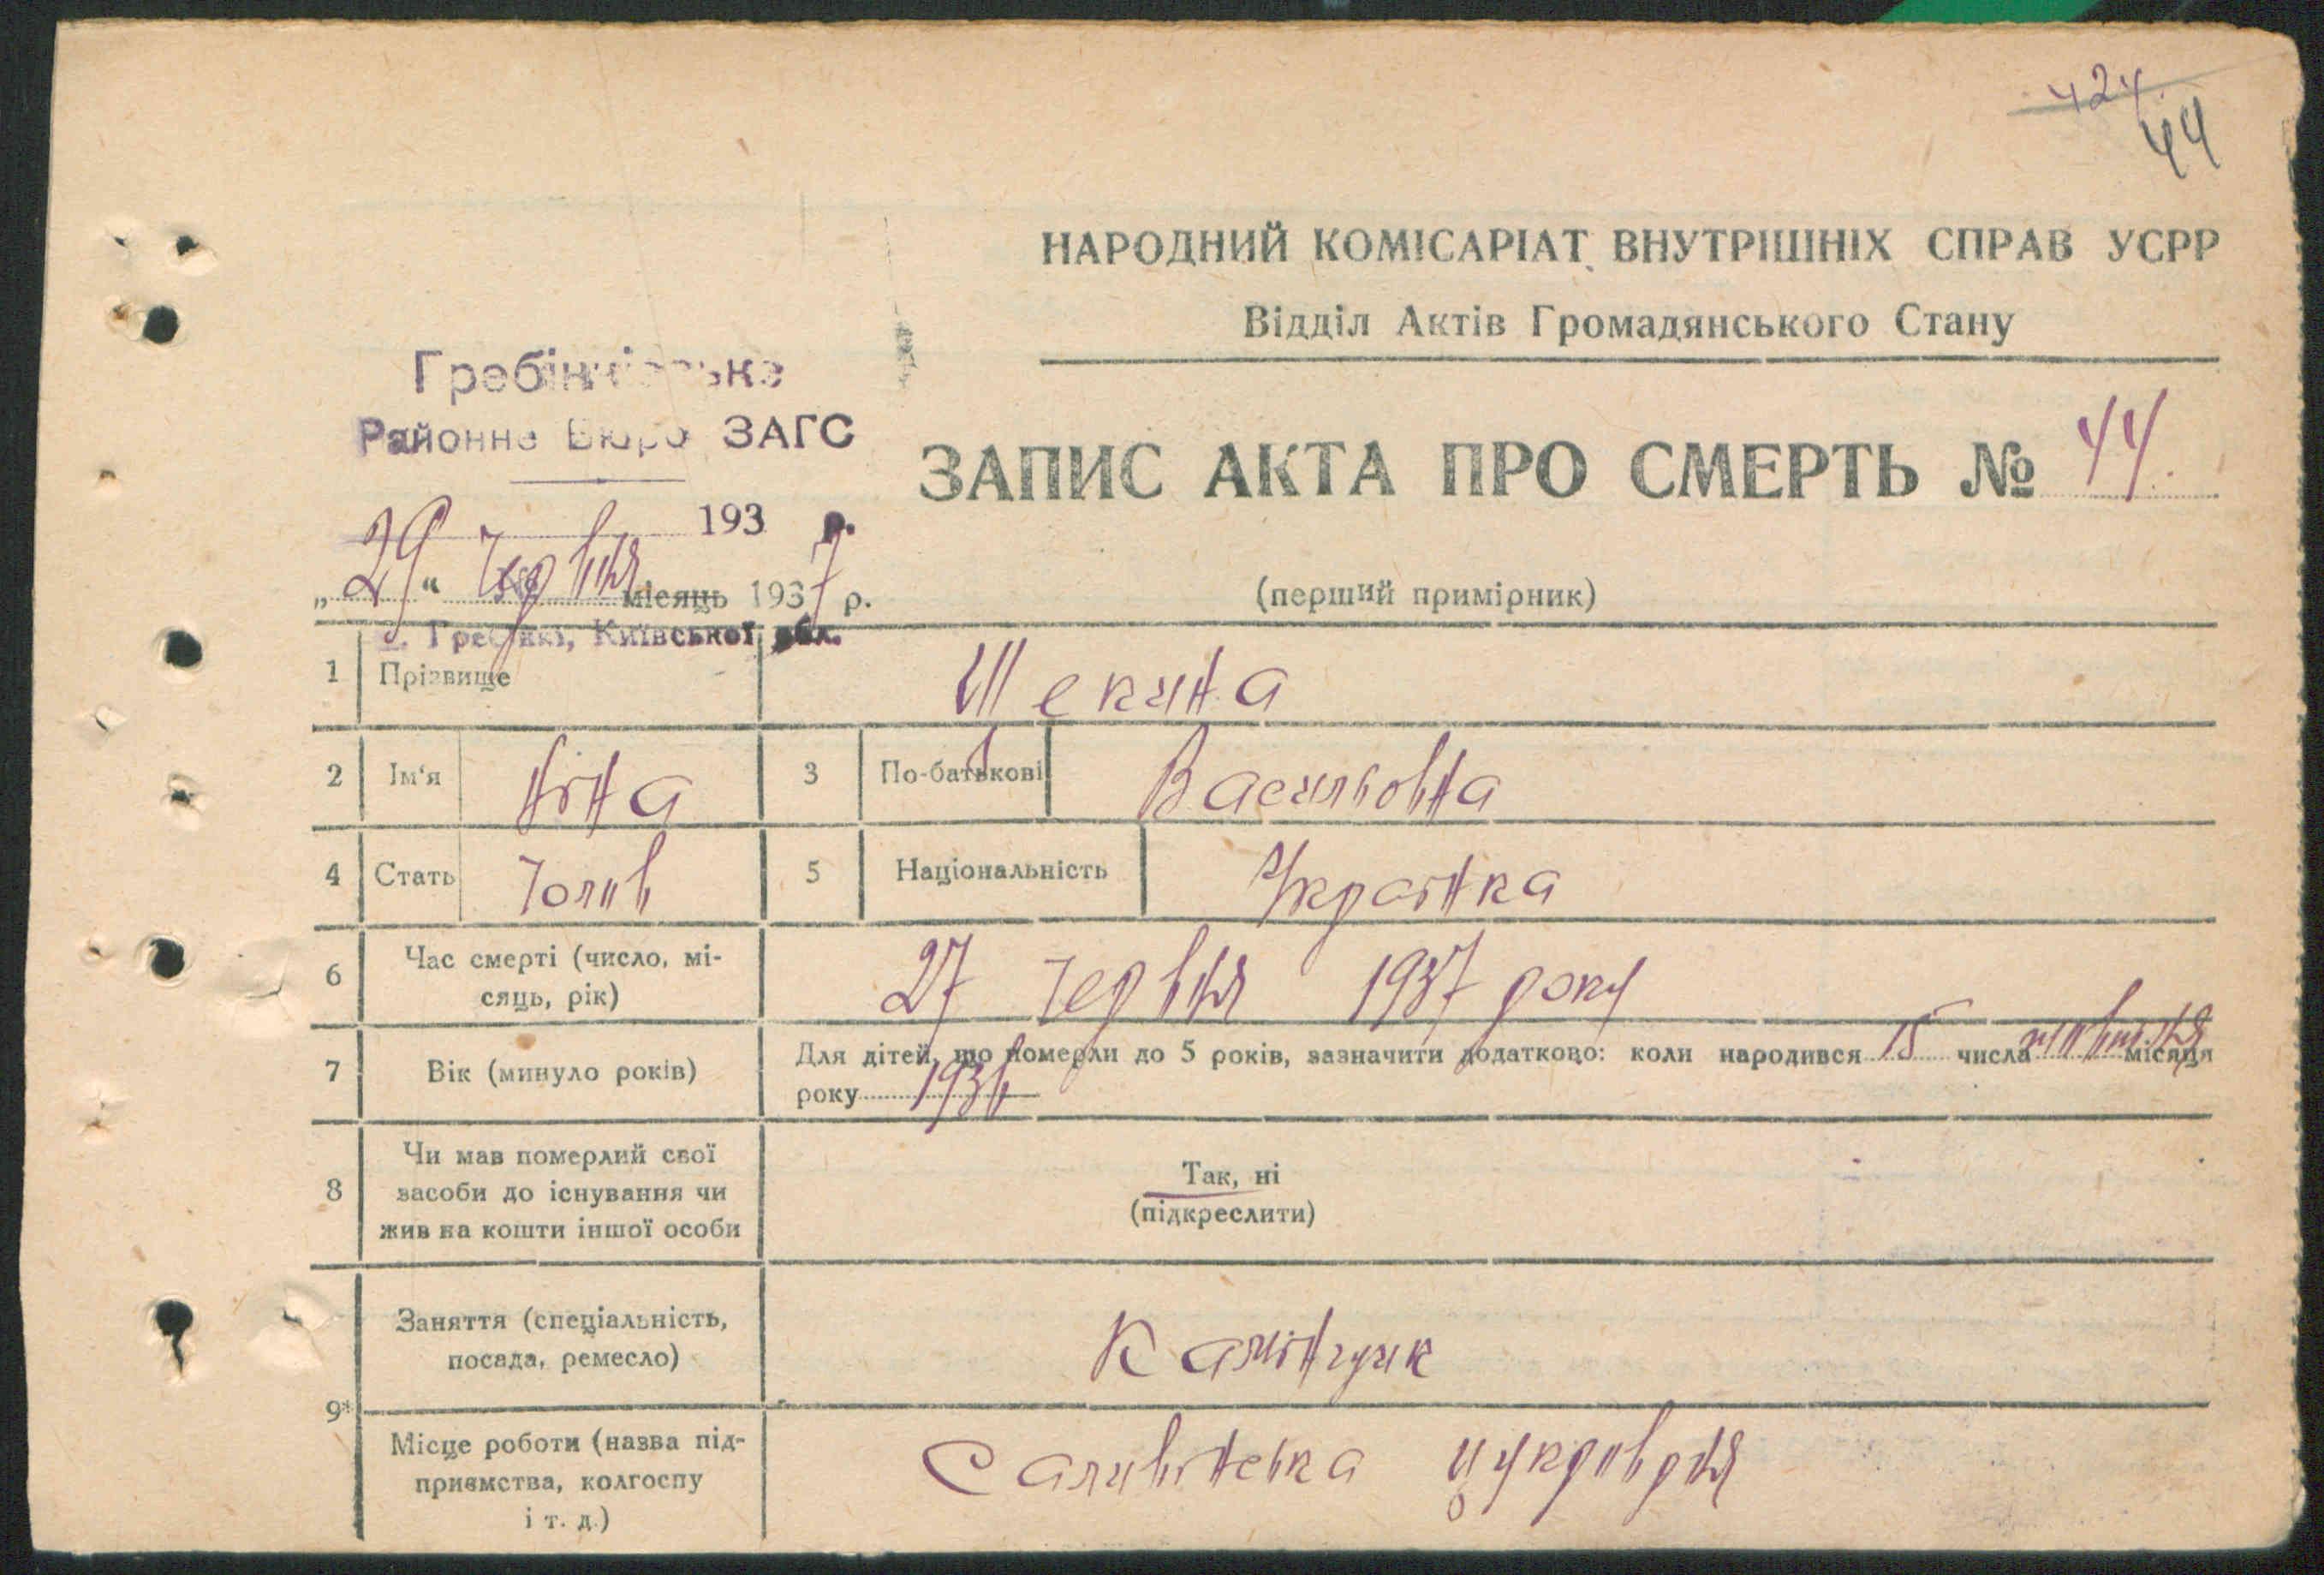 424
44
НАРОДНИЙ КОМІСАРІАТ ВНУТРІШНІХ СПРАВ УСРР
Відділ Актів Громадянського Стану
Гребінківське
Районне Бюро ЗАГС
ЗАПИС АКТА ПРО СМЕРТЬ № 44.
193 р.
„29“ Червня місяць 1937 р.
(перший примірник)
с. Гребінки, Київської обл.
1 Прізвище Щекина
2 Ім‘я Ніна 3 По-батькові Васильовна
4 Стать Чолов 5 Національність Украінка
6 Час смерті (число, мі-
сяць, рік) 27 Червня 1937 року
7 Вік (минуло років) Для дітей, що померли до 5 років, зазначити додатково: коли народився 15 числа місяця
року 1936
8 Чи мав померлий свої
засоби до існування чи
жив на кошти іншої особи
Так, ні
(підкреслити)
9*
Заняття (спеціальність,
посада, ремесло)
Місце роботи (назва під-
приємства, колгоспу
і т. д.)
Саливінська цукроварня